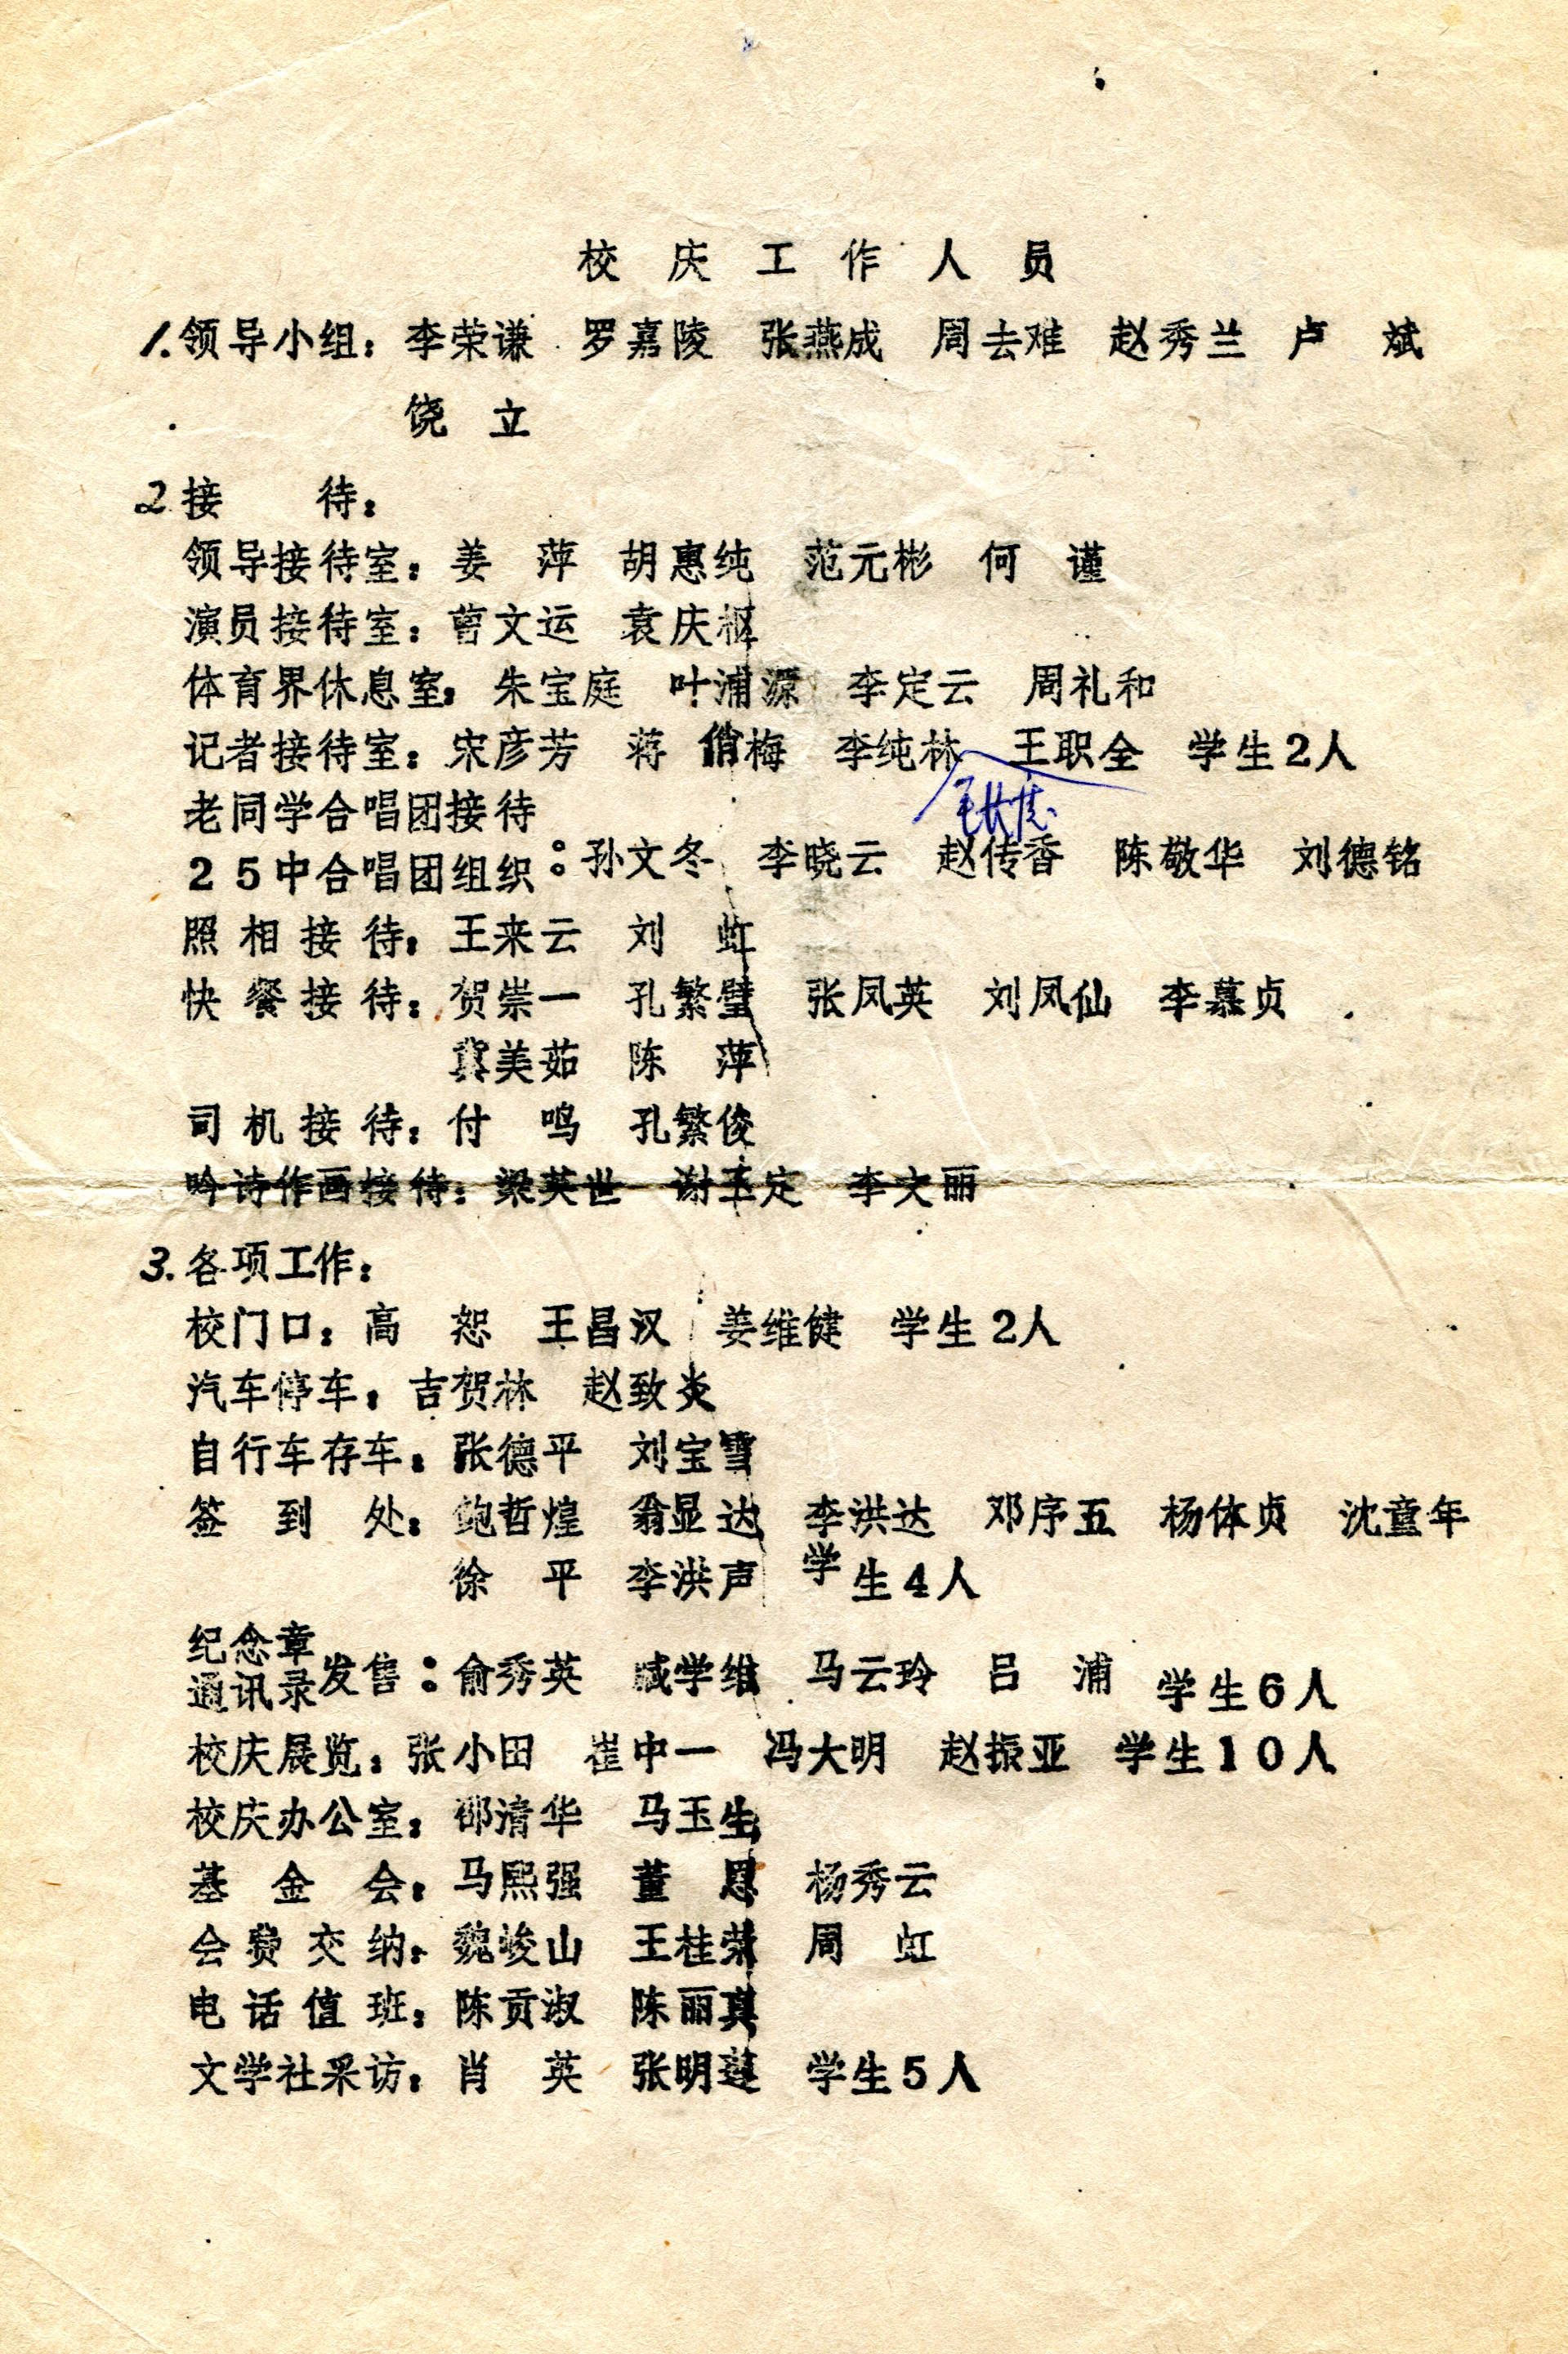 校庆工作人员
1.领导小组：李荣谦 罗嘉陵 张燕成 周去难 赵秀兰 卢 斌
饶 立
2.接 待：
领导接待室：姜 萍 胡惠纯 范元彬 何 谨
演员接待室：曹文运 袁庆枢
体育界休息室：朱宝庭 叶浦源 李定云 周礼和
记者接待室：宋彦芳 蒋俏梅 李纯林 王职全 学生2人
老同学合唱团接待
25中合唱团组织：孙文冬 李晓云 赵传香 陈敬华 刘德铭
照相接待：王来云 刘 虹
快餐接待：贺崇一 孔繁璧 张凤英 刘凤仙 李慕贞
冀美茹 陈 萍
司机接待：付 鸣 孔繁俊
吟诗作画接待：梁英世 谢玉定 李文丽
3.各项工作：
校门口：高 恕 王昌汉 姜维健 学生2人
汽车停车：吉贺林 赵致炎
自行车存车：张德平 刘宝雪
签 到 处：鲍哲煌 翁显达 李洪达 邓序五 杨体贞 沈童年
徐 平 李洪声 学生4人
纪念章
通讯录发售：俞秀英 臧学维 马云玲 吕 浦 学生6人
校庆展览：张小田 崔中一 冯大明 赵振亚 学生10人
校庆办公室：邵清华 马玉生
基 金 会：马熙强 董 愚 杨秀云
会费交纳：魏峻山 王桂荣 周 虹
电话值班：陈贡淑 陈丽真
文学社采访：肖 英 张明莲 学生5人